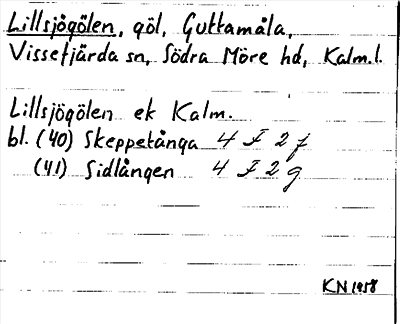 Lillsjögölen, göl, Guttamåla,
Vissefjärda sn, Södra Möre hd, Kalm.l.
Lillsjögölen ek Kalm.
bl. (40) Skeppetånga 4 F 2 f
(41) Sidlången 4 F 2 g
KN 1958